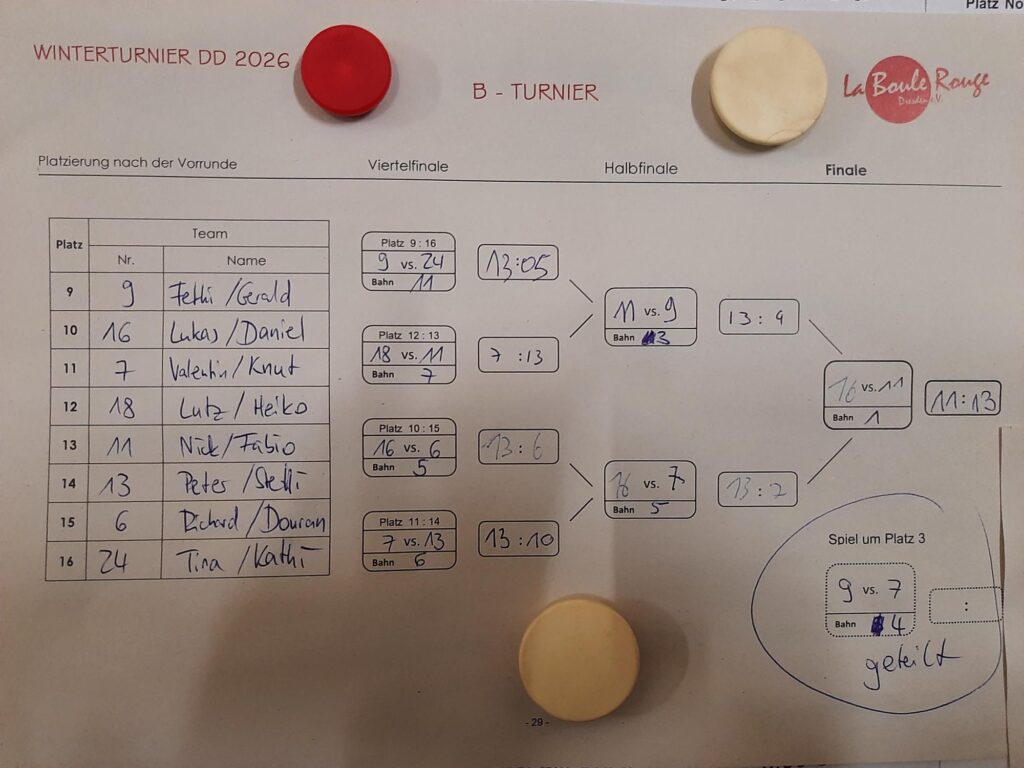 Platz No
WINTERTURNIER DD 2026
B - TURNIER
La Boule Rouge
Dresden e.V.
Platzierung nach der Vorrunde Viertelfinale Halbfinale Finale
Platz Team
Nr. Name
9 9 Fethi / Gerald
10 16 Lukas / Daniel
11 7 Valentin / Knut
12 18 Lutz / Heiko
13 11 Nick / Fabio
14 13 Peter / Steffi
15 6 Richard / Dourian
16 24 Tina / Kathi
Platz 9 : 16
9 vs. 24 13:05
Bahn 11
Platz 12 : 13
18 vs. 11 7 : 13
Bahn 7
Platz 10 : 15
16 vs. 6 13 : 6
Bahn 5
Platz 11 : 14
7 vs. 13 13 : 10
Bahn 6
11 vs. 9 13 : 9
Bahn 3
16 vs. 7 13 : 2
Bahn 5
16 vs. 11 11:13
Bahn 1
Spiel um Platz 3
9 vs. 7 :
Bahn 4
geteilt
- 29 -